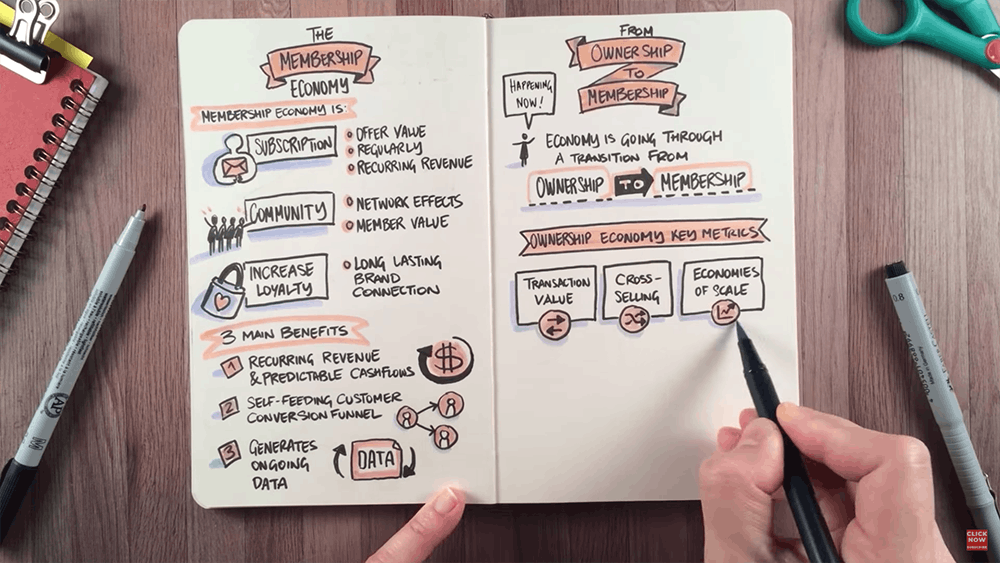 THE
MEMBERSHIP
ECONOMY
MEMBERSHIP ECONOMY IS:
SUBSCRIPTION
OFFER VALUE
REGULARLY
RECURRING REVENUE
COMMUNITY
NETWORK EFFECTS
MEMBER VALUE
INCREASE
LOYALTY
LONG LASTING
BRAND
CONNECTION
3 MAIN BENEFITS
1 RECURRING REVENUE
& PREDICTABLE CASHFLOWS
$
2 SELF-FEEDING CUSTOMER
CONVERSION FUNNEL
3 GENERATES
ONGOING
DATA
DATA
FROM
OWNERSHIP
TO
MEMBERSHIP
HAPPENING
NOW!
ECONOMY IS GOING THROUGH
A TRANSITION FROM
OWNERSHIP TO MEMBERSHIP
OWNERSHIP ECONOMY KEY METRICS
TRANSACTION
VALUE
CROSS-
SELLING
ECONOMIES
OF SCALE
0.8
CLICK
NOW